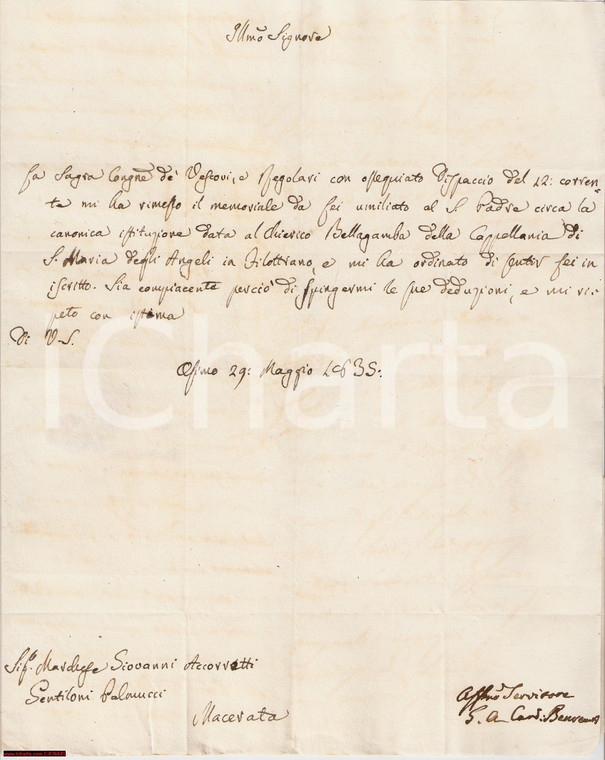 Illmo Signore
La Sagra Congne de' Vescovi, e Regolari con ossequiato Dispaccio del 22: corren-
te mi ha rimesso il memoriale da Lei umiliato al S. Padre circa la
canonica istituzione data al Chierico Bellagamba della Cappellania di
S. Maria degli Angeli in Filottrano, e mi ha ordinato di sentir Lei in
iscritto. Sia compiacente perciò di spingermi le sue deduzioni, e mi ri-
peto con istima
Di V.S.
Osimo 29: Maggio 1835:
Sigr. Marchese Giovanni Accorretti
Gentiloni Palmucci
Macerata
Affmo Servitore
G. A. Card: Benvenuti
iCharta